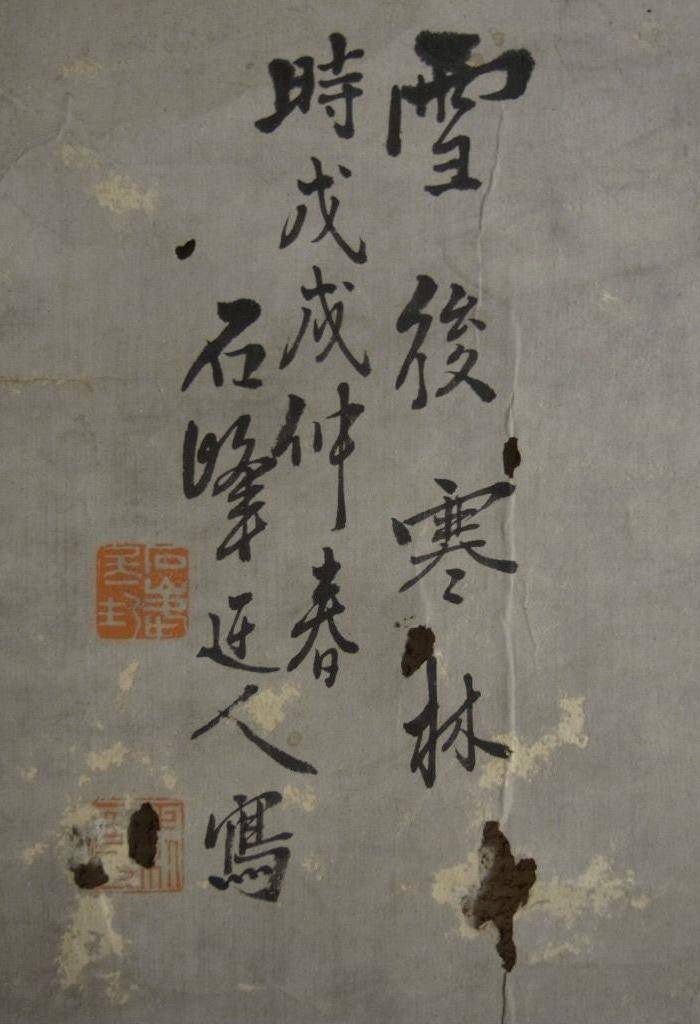 雪後寒林
時戊戌仲春
石峯迂人寫